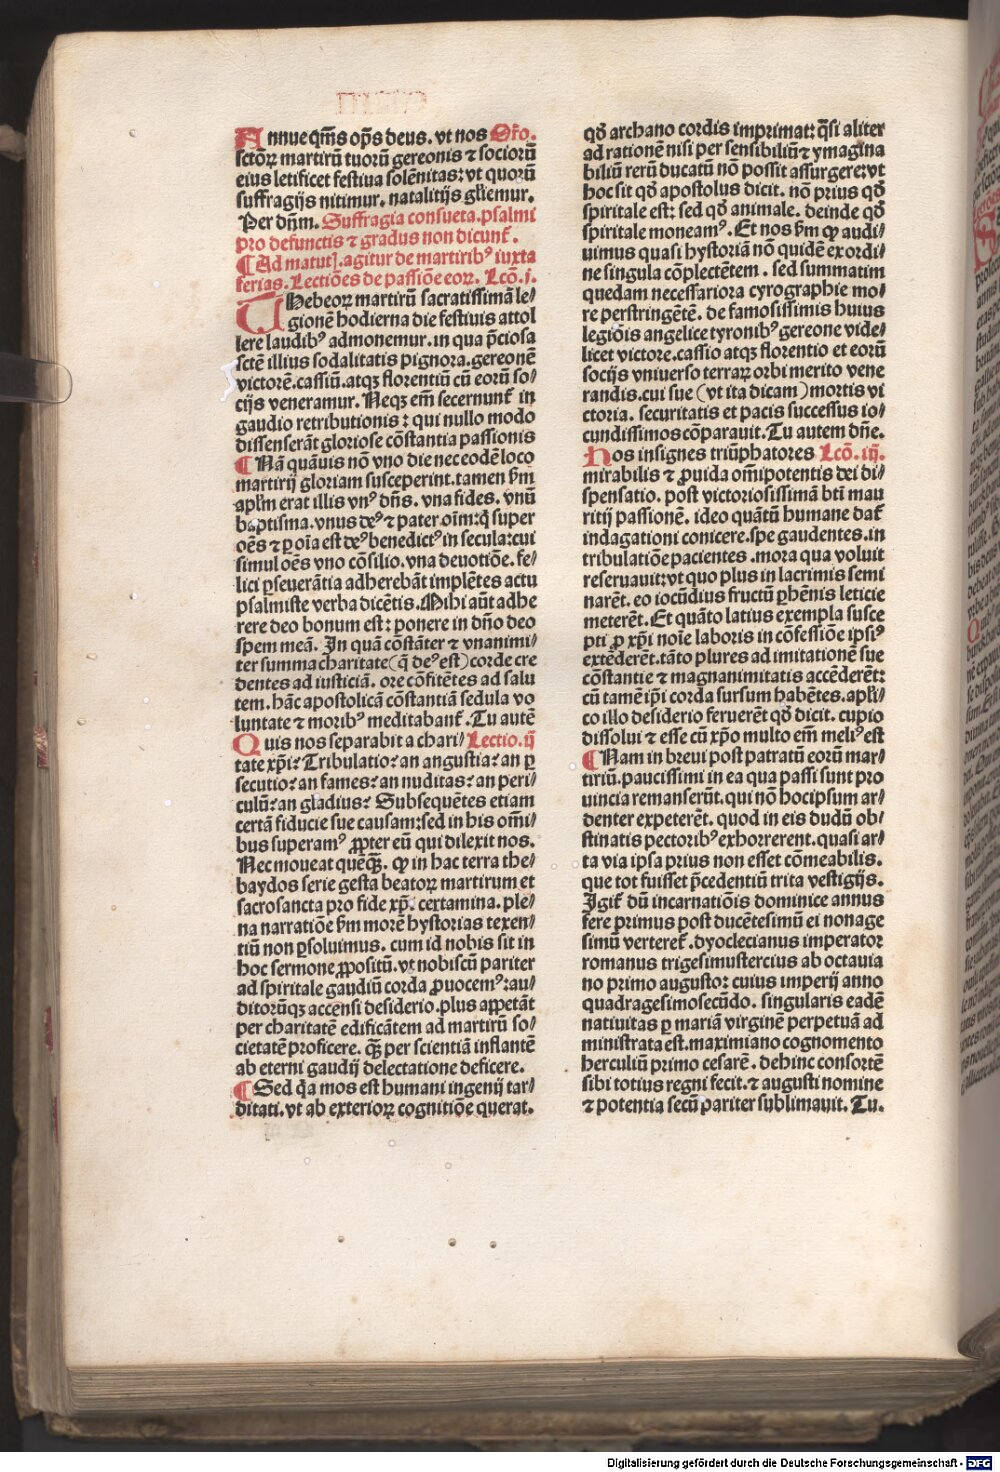 Annue q̄ms op̄s deus. vt nos Or̄o.
sctōꝝ martirū tuorū gereonis ⁊ sociorū
eius letificet festiua solēnitas: vt quorū
suffragijs nitimur. natalitijs gl̄iemur.
Per dn̄m. Suffragia consueta. psalmi
pro defunctis ⁊ gradus non dicunt̄.
¶ Ad matut̄. agitur de martirib⁹ iuxta
ferias. Lectiōes de passiōe eoꝝ. Lcō. j.
THebeoꝝ martirū sacratissimā le⸗
gionē hodierna die festiuis attol
lere laudib⁹ admonemur. in qua p̄ciosa
sctē illius sodalitatis pignora. gereonē
victorē. cassiū. atqꝫ florentiū cū eorū so⸗
cijs veneramur. Neqꝫ em̄ secernunt̄ in
gaudio retributionis: qui nullo modo
dissenserāt gloriose cōstantia passionis
¶ Nā quāuis nō vno die nec eodē loco
martirij gloriam susceperint. tamen ẜm
apl̄m erat illis vn⁹ dn̄s. vna fides. vnū
baptisma. vnus de⁹ ⁊ pater oīm: q̄ super
oēs ⁊ ꝑ oīa est de⁹ benedict⁹ in secula: cui
simul oēs vno cōsilio. vna deuotiōe. fe⸗
lici ꝑseuerātia adherebāt implētes actu
psalmiste verba dicētis. Mihi aūt adhe
rere deo bonum est: ponere in dn̄o deo
spem meā. In quā cōstāter ⁊ vnanimi⸗
ter summa charitate (q̄ de⁹ est) corde cre
dentes ad iusticiā. ore cōfitētes ad salu
tem. hāc apostolicā cōstantiā sedula vo
luntate ⁊ morib⁹ meditabant̄. Tu autē
Quis nos separabit a chari⸗ Lectio. ij
tate xp̄i? Tribulatio? an angustia? an ꝑ
secutio? an fames? an nuditas? an peri⸗
culū? an gladius? Subsequētes etiam
certā fiducie sue causam: sed in his om̄i⸗
bus superam⁹ ꝓpter eū qui dilexit nos.
Nec moueat quēqꝫ̄. ꝙ in hac terra the⸗
baydos serie gesta beatoꝝ martirum et
sacrosancta pro fide xp̄i. certamina. ple⸗
na narratiōe ẜm morē hystorias texen⸗
tiū non ꝑsoluimus. cum id nobis sit in
hoc sermone ꝓpositū. vt nobiscū pariter
ad spiritale gaudiū corda ꝓuocem⁹: au⸗
ditorūqꝫ accensi desiderio. plus appetāt
per charitatē edificātem ad martirū so⸗
cietatē proficere. qꝫ̄ per scientiā inflantē
ab eterni gaudij delectatione deficere.
¶ Sed q̄a mos est humani ingenij tar⸗
ditati. vt ab exterioꝝ cognitiōe querat.
qd̄ archano cordis imprimat: q̄si aliter
ad rationē nisi per sensibiliū ⁊ ymagina
biliū rerū ducatū nō possit assurgere: vt
hoc sit qd̄ apostolus dicit. nō prius qd̄
spiritale est: sed qd̄ animale. deinde qd̄
spiritale moneam⁹. Et nos ẜm ꝙ audi⸗
uimus quasi hystoriā nō quidē ex ordi⸗
ne singula cōplectētem. sed summatim
quedam necessariora cyrographie mo⸗
re perstringētē. de famosissimis huius
legiōis angelice tyronib⁹ gereone vide⸗
licet victore. cassio atqꝫ florentio et eorū
socijs vniuerso terraꝝ orbi merito vene
randis. cui sue (vt ita dicam) mortis vi
ctoria. securitatis et pacis successus io⸗
cundissimos cōparauit. Tu autem dn̄e.
Hos insignes triūphatores Lcō. iij.
mirabilis ⁊ ꝓuida om̄ipotentis dei di⸗
spensatio. post victoriosissimā bt̄i mau
ritij passionē. ideo quātū humane dat̄
indagationi conicere. spe gaudentes. in
tribulatiōe pacientes. mora qua voluit
reseruauit: vt quo plus in lacrimis semi
narēt. eo iocūdius fructū ꝑhēnis leticie
meterēt. Et quāto latius exempla susce
pti ꝓ xp̄i noīe laboris in cōfessiōe ipsi⁹
extēderēt. tāto plures ad imitationē sue
cōstantie ⁊ magnanimitatis accēderēt:
cū tamē ip̄i corda sursum habētes. apl̄i⸗
co illo desiderio feruerēt qd̄ dicit. cupio
dissolui ⁊ esse cū xp̄o multo em̄ meli⁹ est
¶ Nam in breui post patratū eorū mar⸗
tiriū. paucissimi in ea qua passi sunt pro
uincia remanserūt. qui nō hocipsum ar⸗
denter expeterēt. quod in eis dudū ob⸗
stinatis pectorib⁹ exhorrerent. quasi ar⸗
ta via ipsa prius non esset cōmeabilis.
que tot fuisset p̄cedentiū trita vestigijs.
Igit̄ dū incarnatiōis dominice annus
fere primus post ducētesimū ei nonage
simū verteret̄. dyoclecianus imperator
romanus trigesimustercius ab octauia
no primo augusto: cuius imperij anno
quadragesimosecūdo. singularis eadē
natiuitas ꝑ mariā virginē perpetuā ad
ministrata est. maximiano cognomento
herculiū primo cesarē. dehinc consortē
sibi totius regni fecit. ⁊ augusti nomine
⁊ potentia secū pariter sublimauit. Tu.
Digitalisierung gefördert durch die Deutsche Forschungsgemeinschaft - DFG